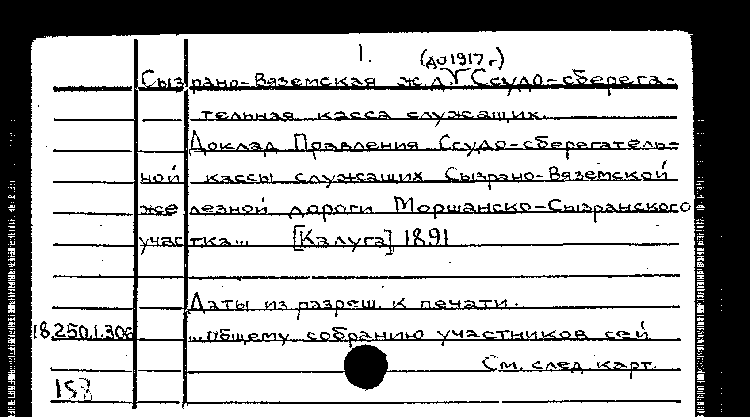 1.
(до 1917 г)
Сызрано-Вяземская ж.д. Ссудо-сберега-
тельная касса служащих.
Доклад Правления Ссудо-сберегатель-
ной кассы служащих Сызрано-Вяземской
железной дороги Моршанско-Сызранского
участка... [Калуга] 1891
Даты из разреш. к печати.
18.250.1.306 ...общему собранию участников сей
См. след карт.